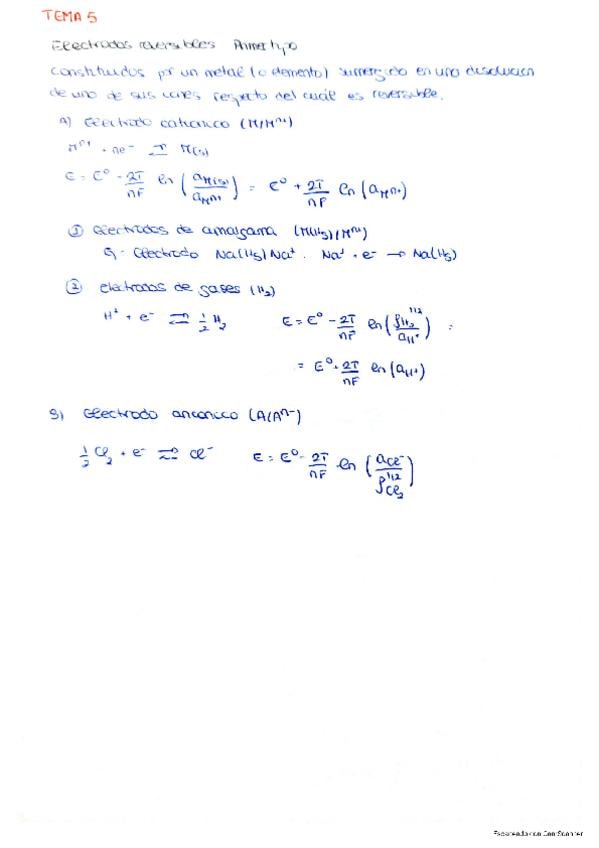 TEMA 5
Electrodos reversibles Primer tipo
Constituidos por un metal (o elemento) sumergido en una disolución
de uno de sus iones respecto del cual es reversible.
A) Electrodo catiónico (M/Mⁿ⁺)
Mⁿ⁺ + ne⁻ ⇌ M(s)
E = E⁰ - RT/nF ln (a_M(s)/a_Mⁿ⁺) = E⁰ + RT/nF ln (a_Mⁿ⁺)
① Electrodos de amalgama (M(Hg)/Mⁿ⁺)
Ej - Electrodo Na(Hg)/Na⁺. Na⁺ + e⁻ → Na(Hg)
② electrodos de gases (H₂)
H⁺ + e⁻ ⇌ 1/2 H₂ E = E⁰ - RT/nF ln (P_H₂^1/2 / a_H⁺) =
= E⁰ + RT/nF ln (a_H⁺)
B) Electrodo aniónico (A/Aⁿ⁻)
1/2 Cl₂ + e⁻ ⇌ Cl⁻ E = E⁰ - RT/nF ln (a_Cl⁻ / P_Cl₂^1/2)
Escaneado con CamScanner